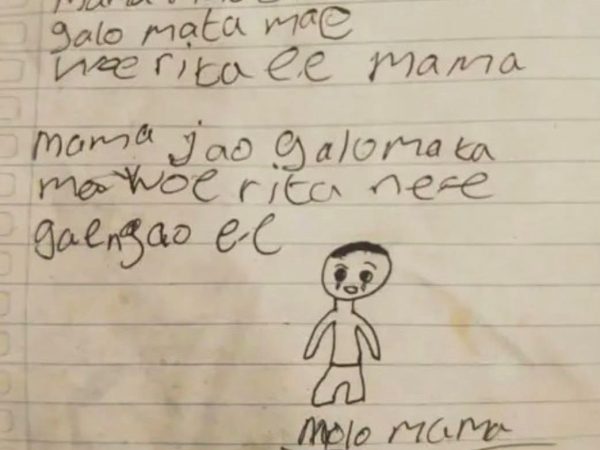 galo mata mae
woe rita e.e mama
mama jao galo mata
mae woe rita ne-e
gae ngao e-e
molo mama